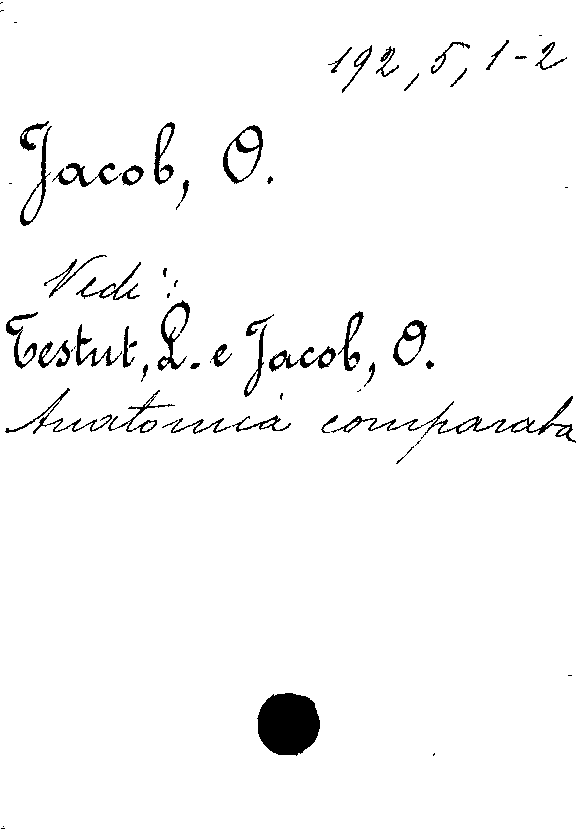 192, 5, 1-2
Jacob, O.
Vedi:
Testut, L. e Jacob, O.
Anatomia comparata